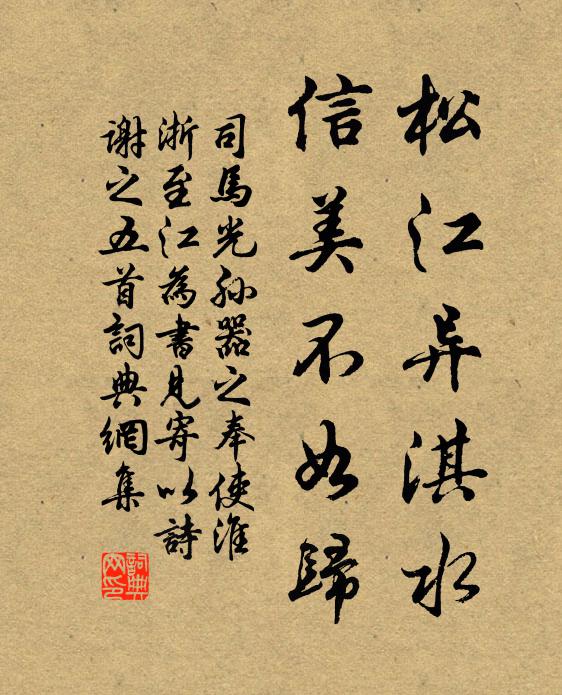 松江异淇水
信美不如歸
司馬光孙器之奉使淮
浙至江為書見寄以詩
謝之五首詞典網集
詞典
网印